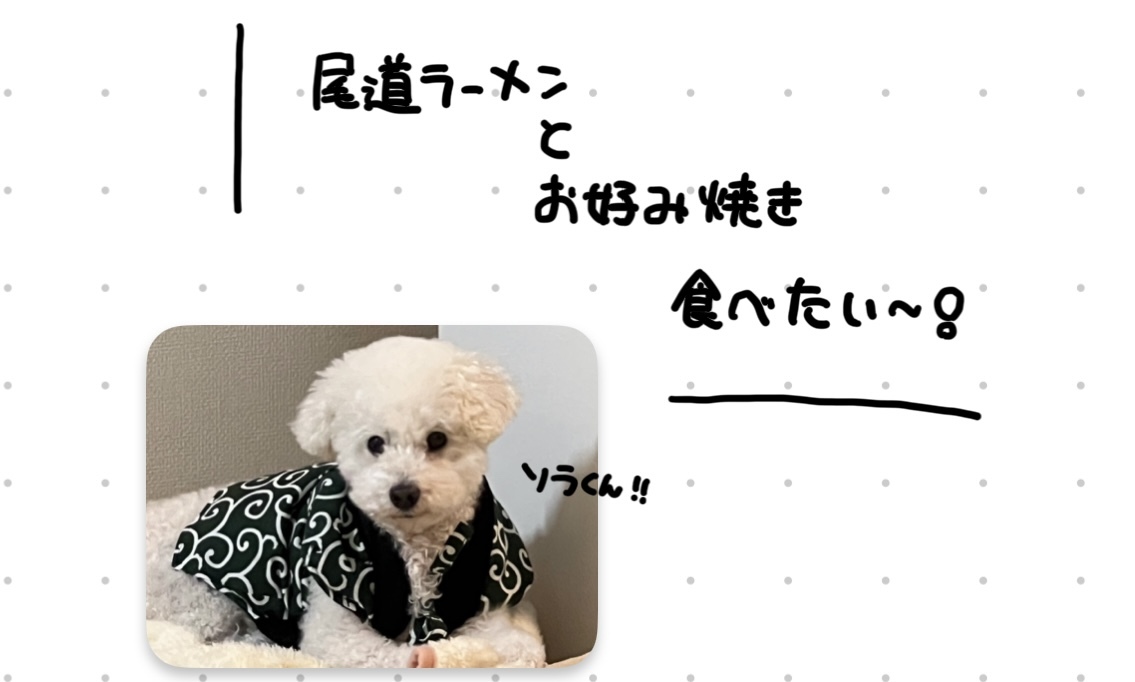 尾道ラーメン
と
お好み焼き
食べたい〜!
ソラくん!!